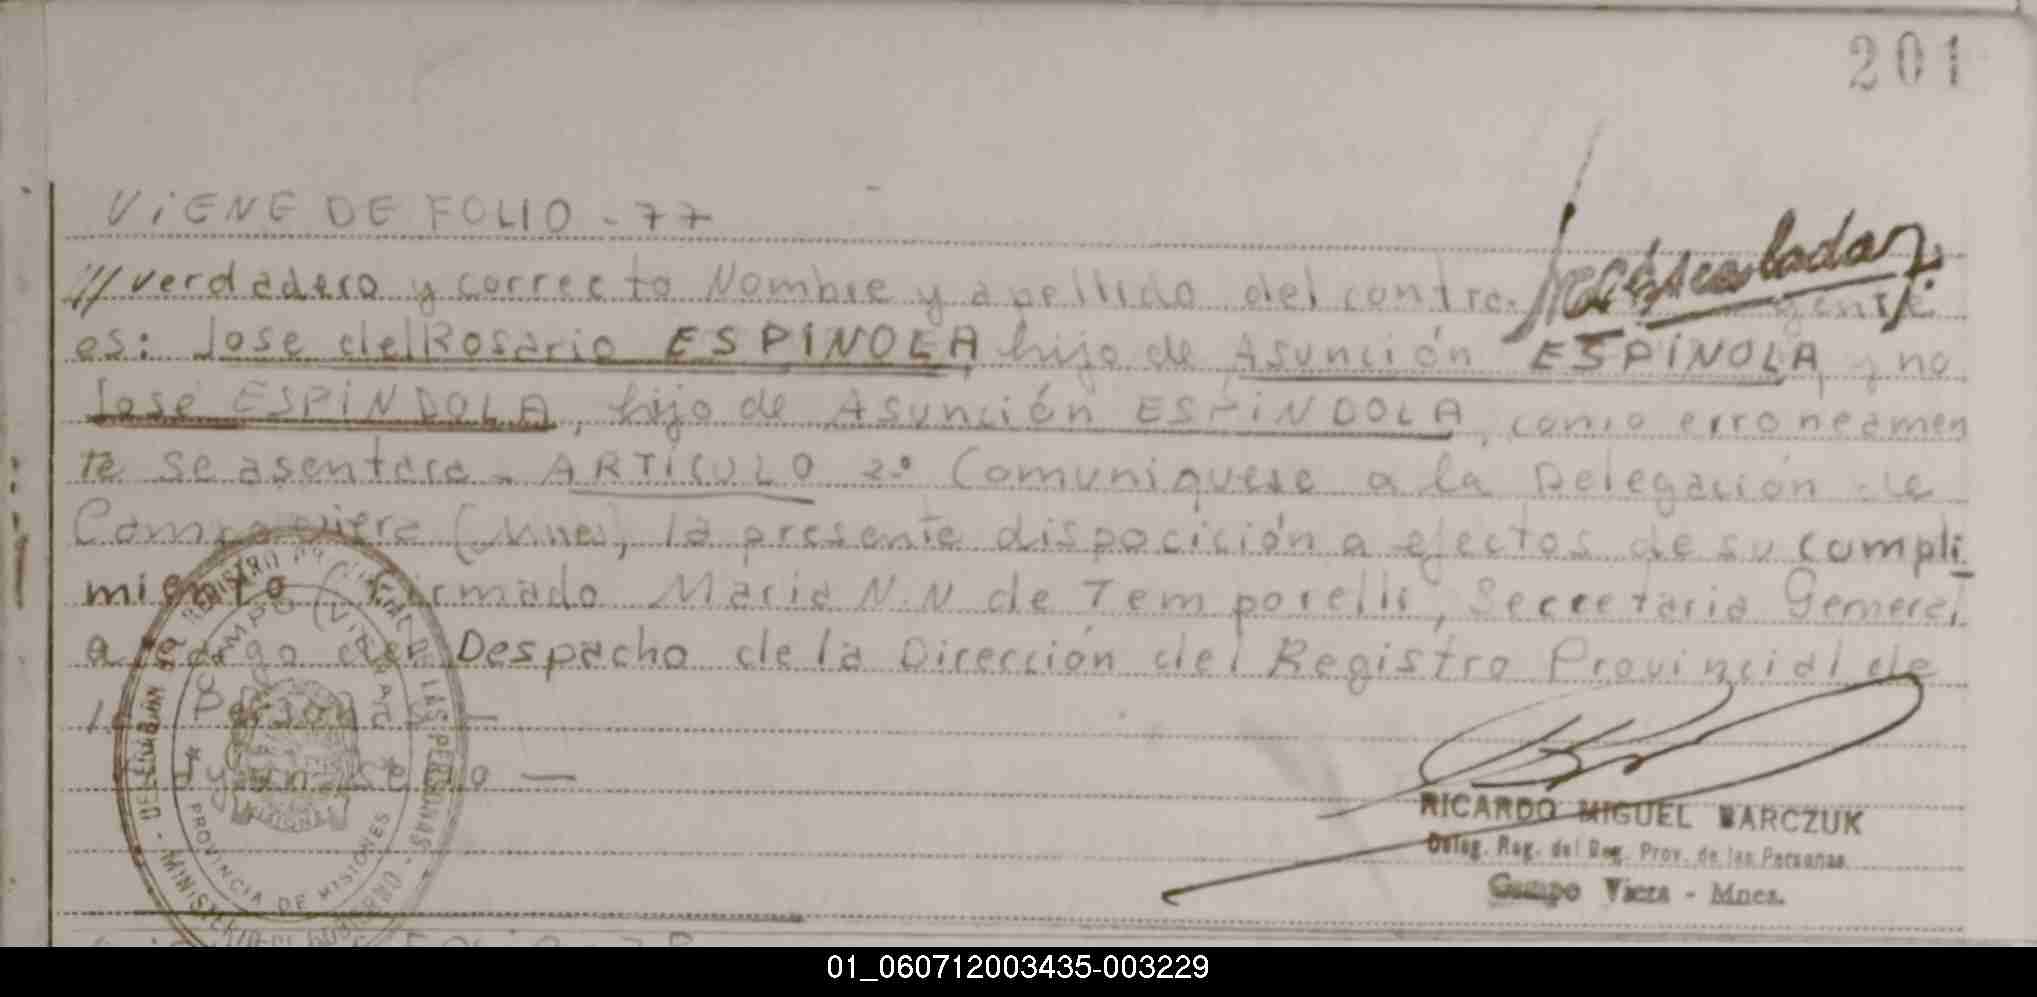 201
VIENE DE FOLIO - 77
/// verdadero y correcto Nombre y apellido del contra yente
es: Jose del Rosario ESPINOLA hijo de Asunción ESPINOLA, y no
José ESPINDOLA, hijo de Asunción ESPINDOLA, como erroneamen
te se asentara - ARTICULO 2º Comuniquese a la Delegación de
Campo Viera (Mnes), la presente disposición a efectos de su cumpli
miento (Firmado Maria N.N de Temporelli, Secretaria General
a cargo del Despacho de la Dirección del Registro Provincial de
las Personas -
RICARDO MIGUEL BARCZUK
Deleg. Reg. del Reg. Prov. de las Personas
Campo Viera - Mnes.
DELEGACIÓN REGISTRO PROVINCIAL DE LAS PERSONAS - MINISTERIO DE GOBIERNO -
CAMPO VIERA
PROVINCIA DE MISIONES
01_060712003435-003229